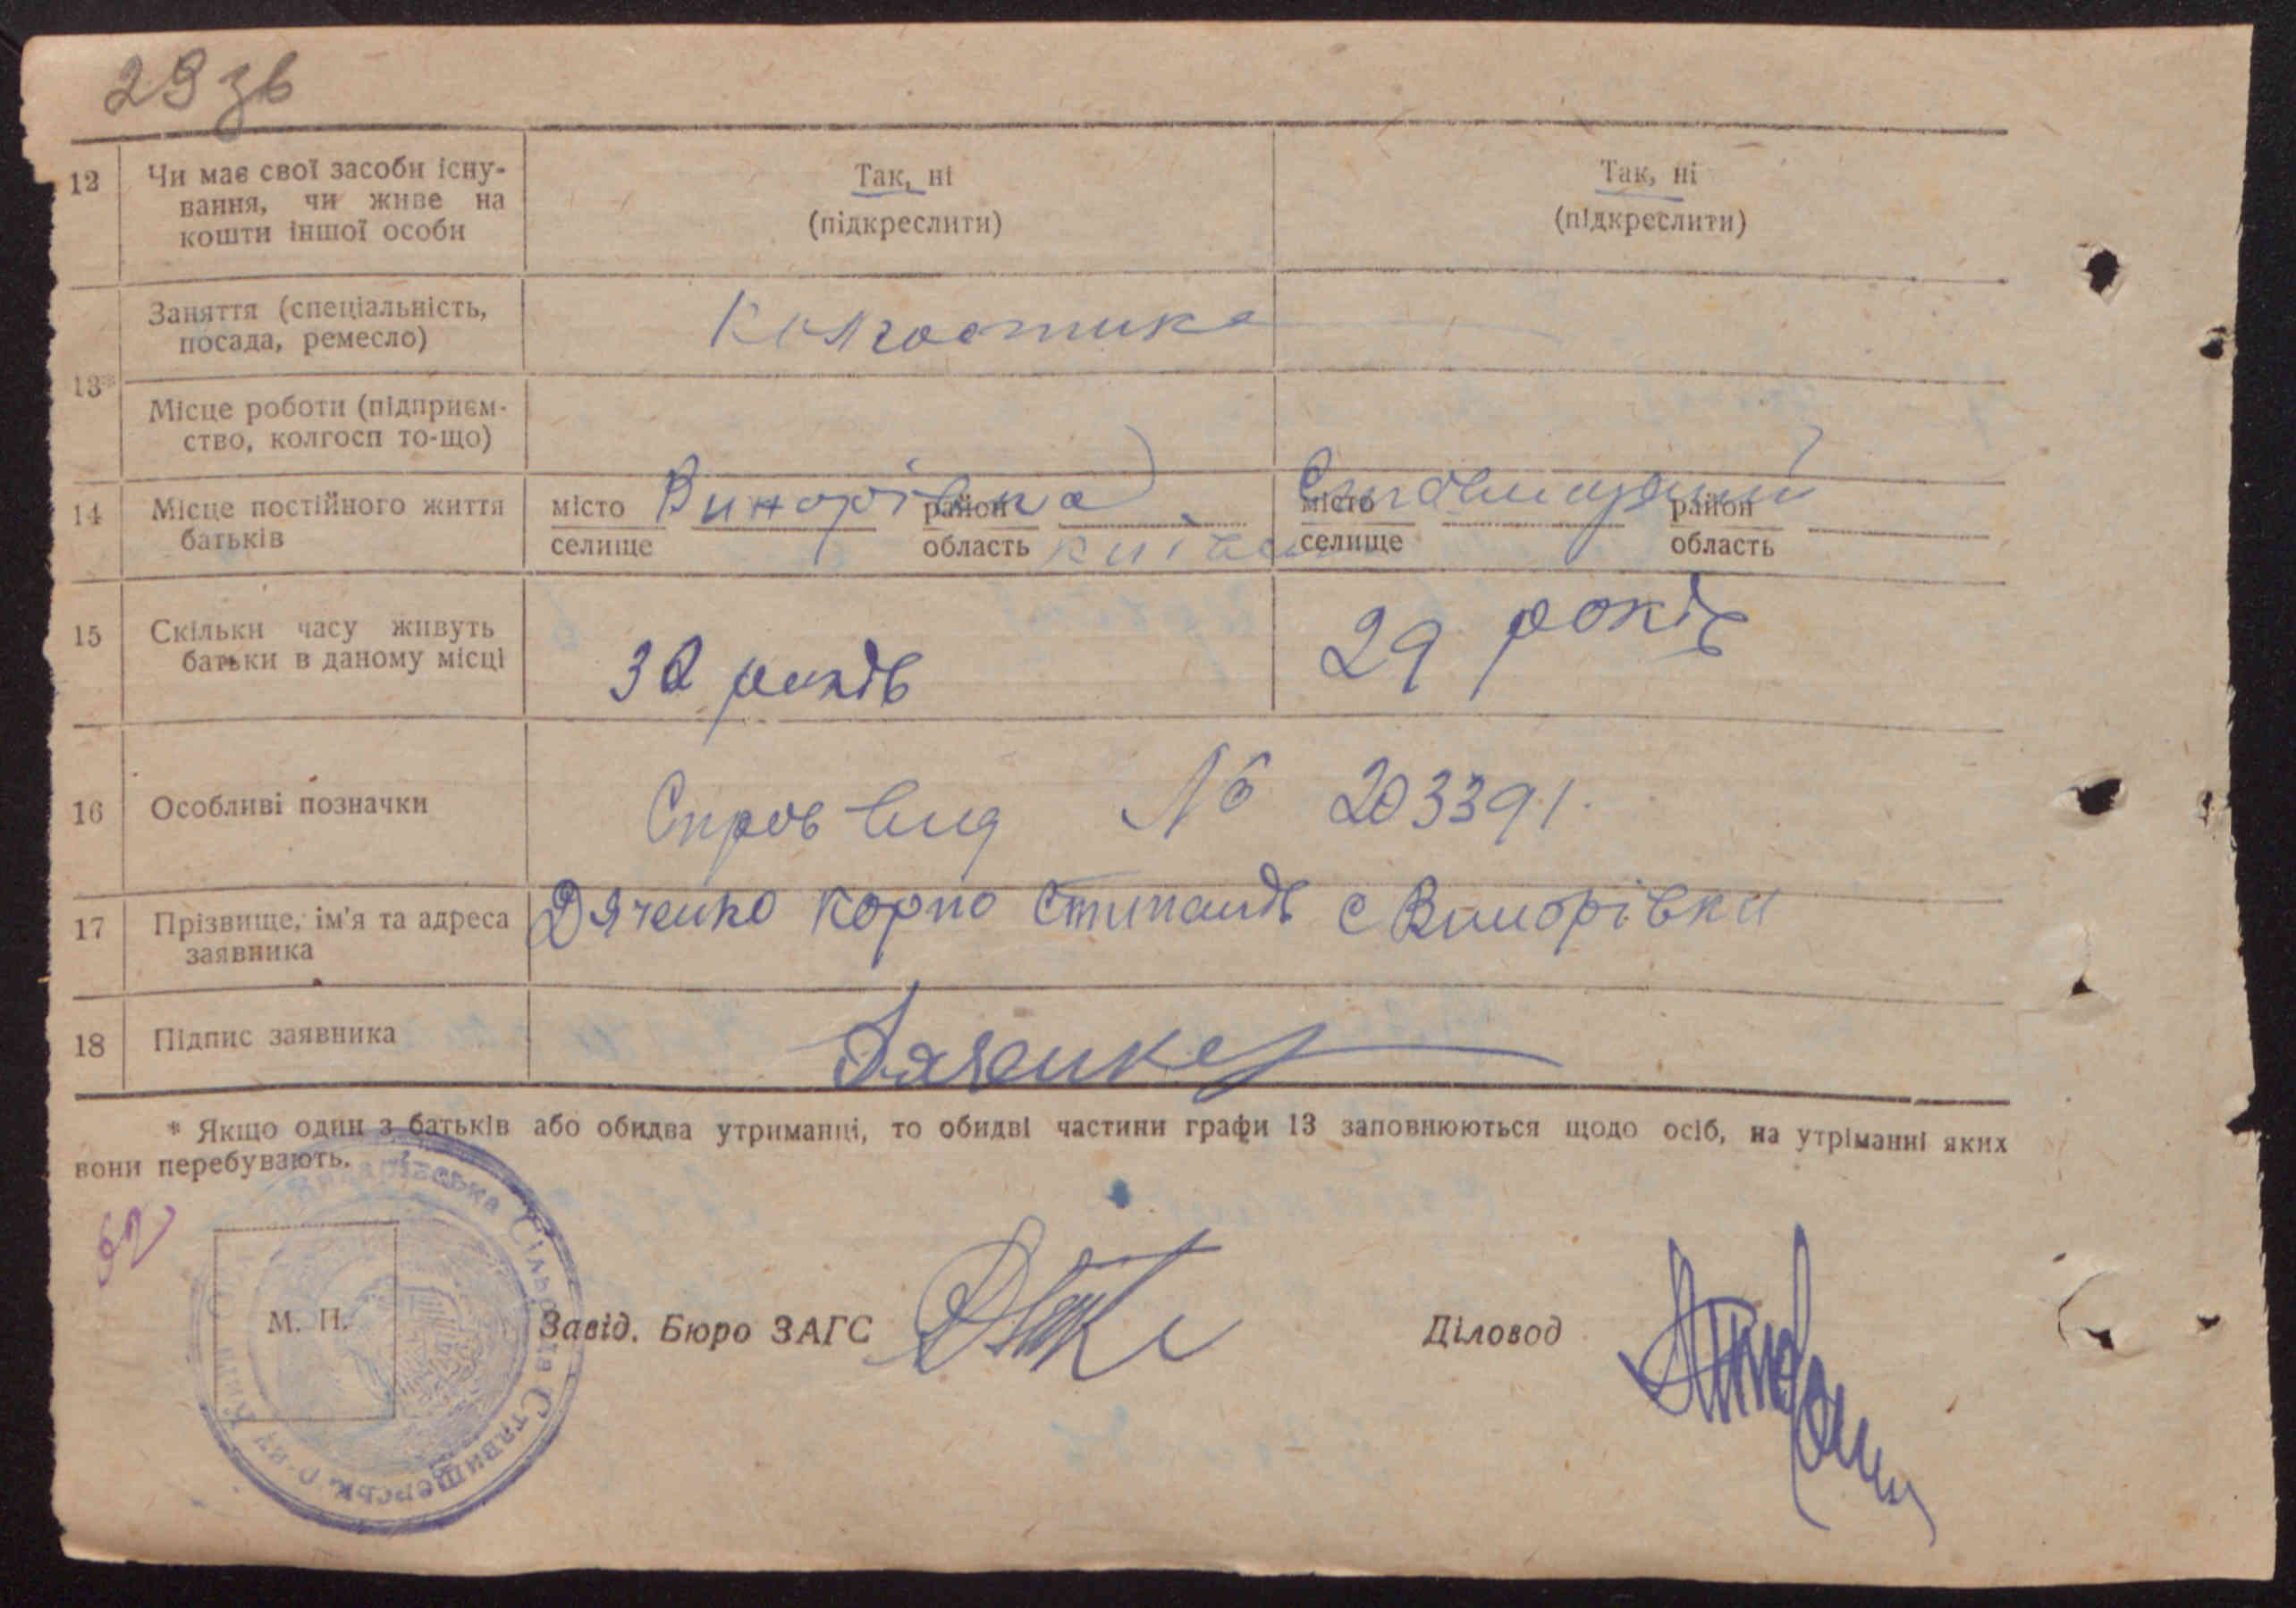 29 зв
12 Чи має свої засоби існу- Так, ні Так, ні
вання, чи живе на (підкреслити) (підкреслити)
кошти іншої особи
Заняття (спеціальність, Колгоспника
посада, ремесло)
13*
Місце роботи (підприєм-
ство, колгосп то-що)
14 Місце постійного життя місто Винорівка район місто Ставищанський район
батьків селище область Київськ селище область
15 Скільки часу живуть 32 років 29 років
батьки в даному місці
16 Особливі позначки № 203391.
17 Прізвище, ім'я та адреса Дяченко Корпо с Виморівки
заявника
18 Підпис заявника Дяченко
* Якщо один з батьків або обидва утриманці, то обидві частини графи 13 заповнюються щодо осіб, на утріманні яких
вони перебувають.
62
М. П. Завід. Бюро ЗАГС Діловод
Сільрада Ставищенськ. р-ну Київ